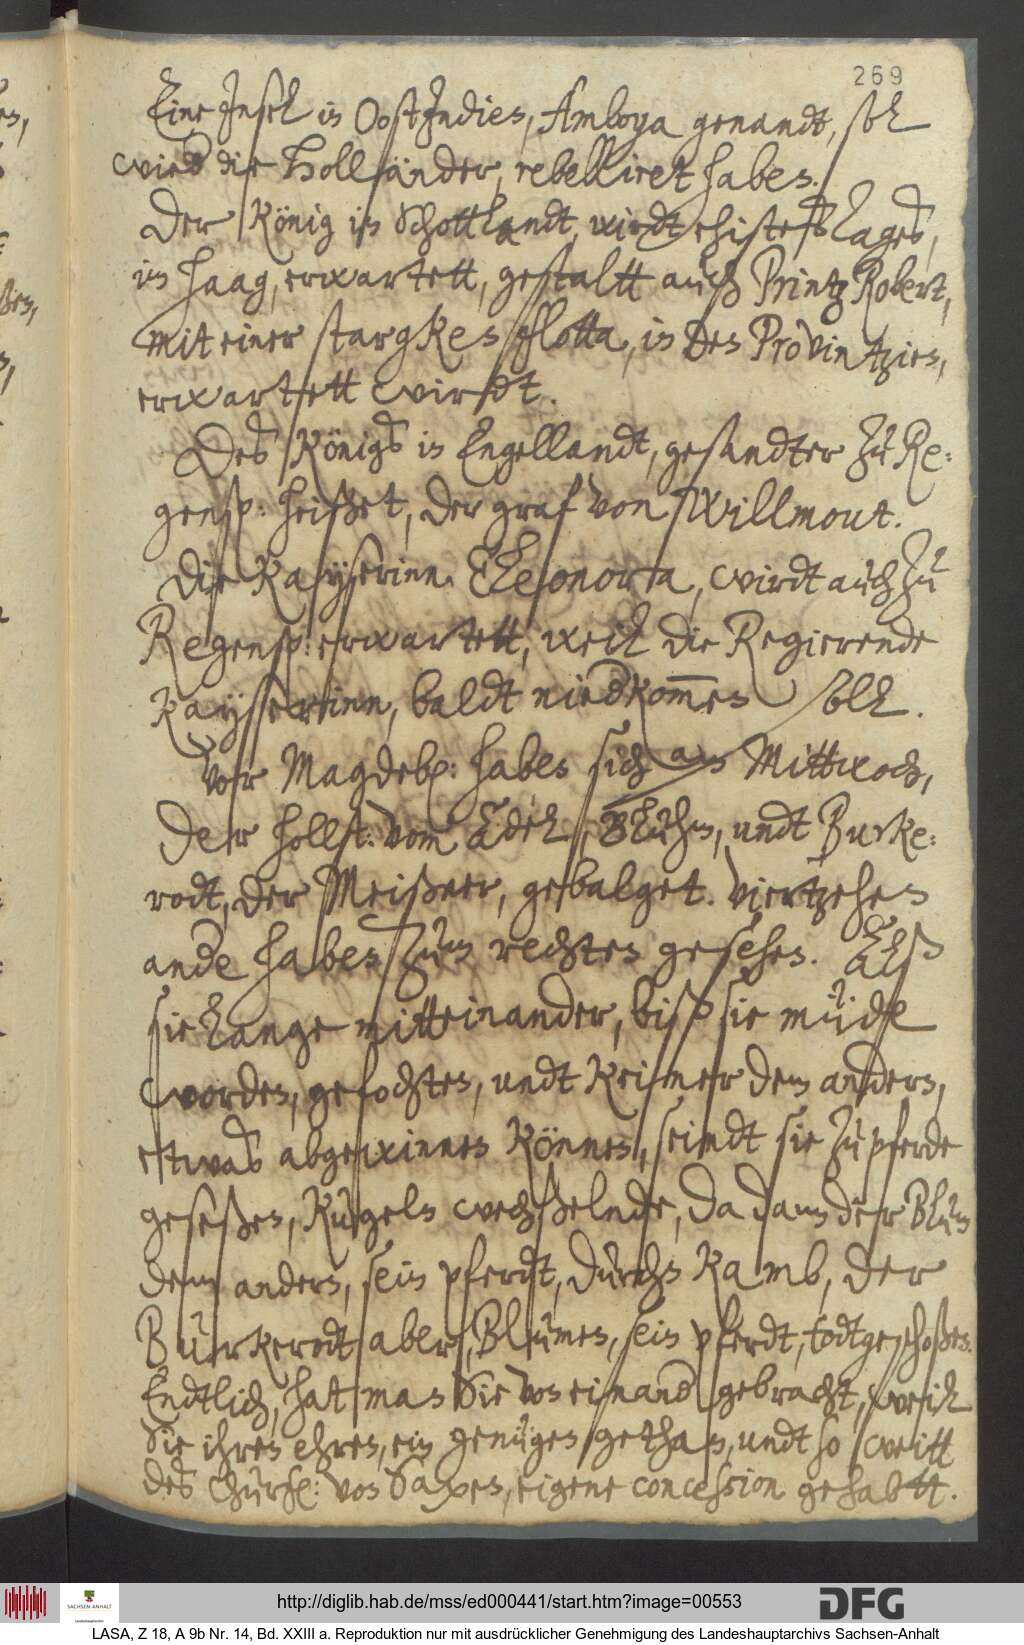 269
Eine Insel in OostIndien, Amboya genandt, sol
wied die Holländer, rebelliret haben.
Der König in Schottlandt, wirdt ehistes Tages,
im Haag, erwartett, gestaltt auch Printz Robert,
mit einer stargken flotta, in den Provintzien,
erwartett wirdt.
Des Königs in Engellandt, gesandter zu Re:
gensp: heißet, der graf von Willmout.
Die Kayserinn Eleonora, wirdt auch zu
Regensp: erwartett, weil die Regierende
Kaysserinn, baldt niedkom̅en soll.
Vor Magdeb: haben sich am Mittwoch,
der Hollst: vom Adel, Bluhm, undt Burke:
rodt, der Meißner, gebalget. Viertzehen
ande haben zum rechten gesehen. Alß
sie lange mitteinander, biß sie müde
worden, gefochten, undt keiner dem andern,
etwas abgewinnen können, seindt sie zu pferde
geseßen, kugeln wechßelnde, da dann der Blum
dem andern, sein pferdt, durchs Kamb, der
Burkerodt aber, Blumen, sein pferdt, todtgeschoßen.
Endtlich, hat man Sie von einand gebracht, weil
Sie ihren ehren, ein genügen gethan, undt so weitt
des Churf: von Saxen, eigene concession gehabtt.
SACHSEN-ANHALT
Landeshauptarchiv
http://diglib.hab.de/mss/ed000441/start.htm?image=00553
DFG
LASA, Z 18, A 9b Nr. 14, Bd. XXIII a. Reproduktion nur mit ausdrücklicher Genehmigung des Landeshauptarchivs Sachsen-Anhalt